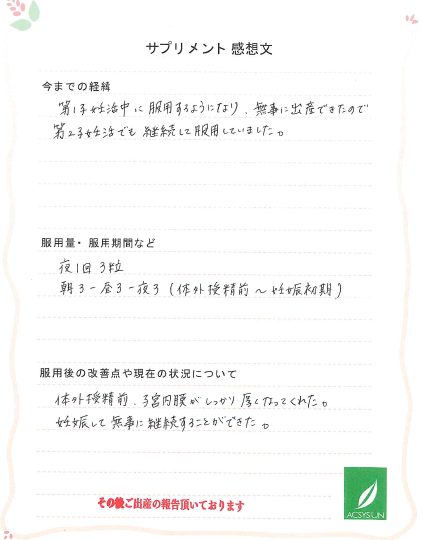 サプリメント感想文
今までの経緯
第1子妊活中に服用するようになり、無事に出産できたので
第2子妊活でも継続して服用していました。
服用量・服用期間など
夜1回3粒
朝3-昼3-夜3(体外授精前〜妊娠初期)
服用後の改善点や現在の状況について
体外授精前、子宮内膜がしっかり厚くなってくれた。
妊娠して無事に継続することができた。
その後ご出産の報告頂いております
ACSYSUN